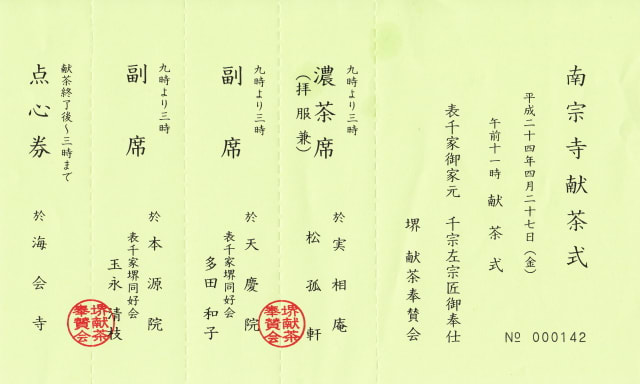 南宗寺献茶式
平成二十四年四月二十七日（金）
午前十一時 献茶式
表千家御家元 千宗左宗匠御奉仕
堺 献茶奉賛会
№ 000142
九時より三時
濃茶席
（拝服兼）
於 実相庵
松孤軒
堺献茶
奉賛会
九時より三時
副席
於 天慶院
表千家堺同好会
多田和子
九時より三時
副席
於 本源院
表千家堺同好会
玉永清枝
堺献茶
奉賛会
献茶終了後〜三時まで
点心券
於 海会寺